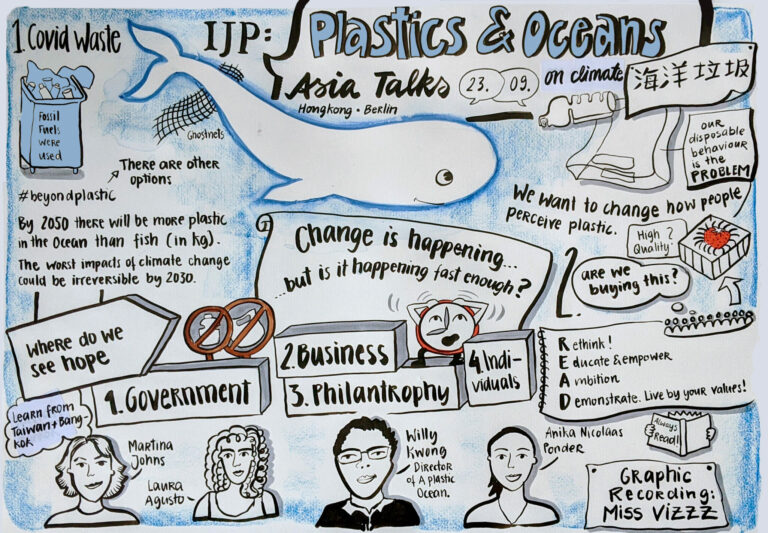 1. Covid Waste
IJP:
Plastics & Oceans
Asia Talks
Hongkong • Berlin
23.
09.
on climate
海洋垃圾
Fossil
Fuels
were
used
Ghostnets
There are other
options
#beyondplastic
our
disposable
behaviour
is the
PROBLEM
By 2050 there will be more plastic
in the Ocean than fish (in kg).
The worst impacts of climate change
could be irreversible by 2030.
We want to change how people
perceive plastic.
High
Quality?
2.
are we
buying this?
Change is happening...
...but is it happening fast enough?
Where do we
see hope
1. Government
2. Business
3. Philantrophy
4. Indi-
viduals
Rethink!
Educate & empower
Ambition
Demonstrate. Live by your values!
Learn from
Taiwan + Bang-
kok
Martina
Johns
Laura
Agusto
Willy
Kwong
Director
of A plastic
Ocean.
Anika Nicolaas
Ponder
Always
Read!!
Graphic
Recording:
Miss Vizzz